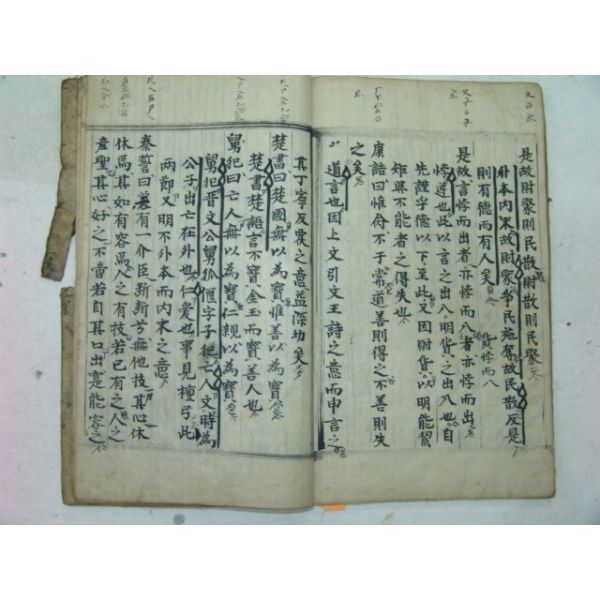 是故財聚則民散財散則民聚
外本內末故財聚爭民施奪故民散反是
則有德而有人矣
是故言悖而出者亦悖而入貨悖而入者亦悖而出
悖逆也此以言之出入明貨之出入也自
先謹乎德以下至此又因財貨以明能絜
矩與不能者之得失也
康誥曰惟命不于常道善則得之不善則失
之矣
道言也因上文引文王詩之意而申言之
其丁寧反覆之意益深切矣
楚書曰楚國無以為寶惟善以為寶
楚書楚語言不寶金玉而寶善人也
舅犯曰亡人無以為寶仁親以為寶
舅犯晉文公舅狐偃字子犯亡人文時為
公子出亡在外也仁愛也事見檀弓此
兩節又明不外本而內末之意
秦誓曰若有一介臣斷斷兮無他技其心休
休焉其如有容焉人之有技若己有之人之
彦聖其心好之不啻若自其口出寔能容之